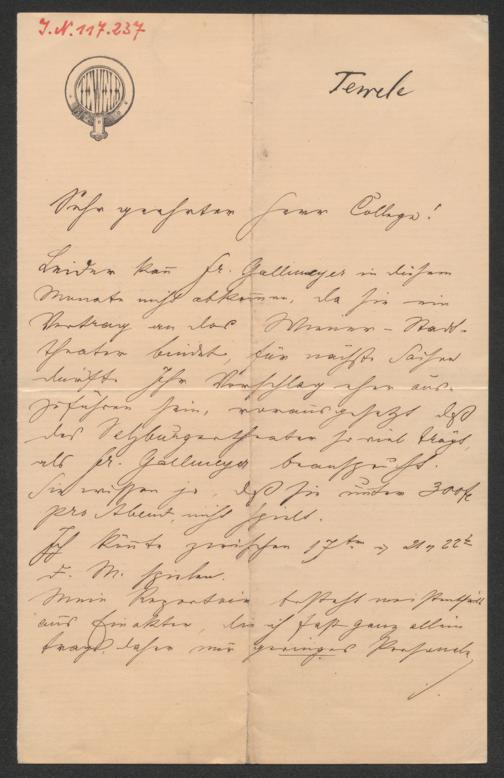 J. N. 117.237
TEWELE
Tewele
Sehr geehrter Herr College!
Leider kan̄ Fr. Gallmeyer in diesem
Monate nicht abkom̄en, da sie ein
Vertrag an das Wiener-Stadt-
theater bindet, für nächste Saison
dürfte Ihr Vorschlag eher aus-
zuführen sein, vorausgesetzt daß
das Salzburgertheater so viel trägt,
als Fr. Gallmeyer beansprucht.
Sie wissen ja, daß sie unter 300 fl
pro Abend, nicht spielt.
Ich könnte zwischen 17ten 21 22t
d. M. spielen.
Mein Repertoir besteht meistentheils
aus Einakter, die ich fast ganz allein
trage, daher nur geringes Personale